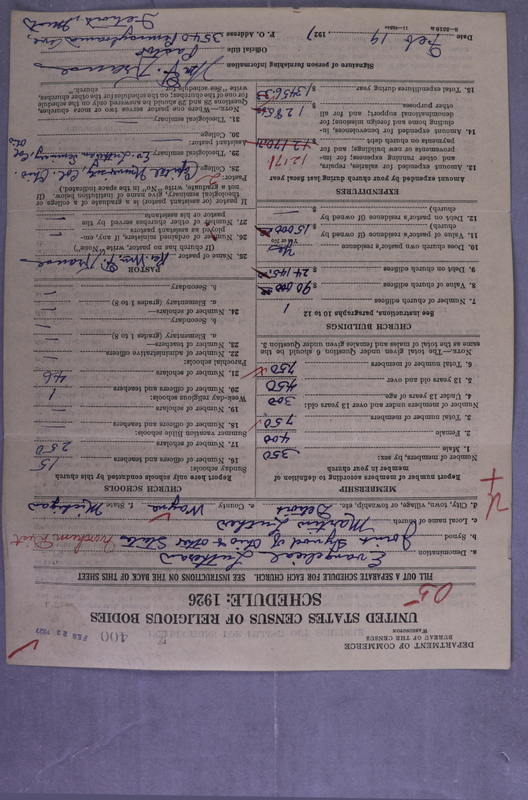 DEPARTMENT OF COMMERCE
BUREAU OF THE CENSUS
WASHINGTON
400
FEB 23 1927
UNITED STATES CENSUS OF RELIGIOUS BODIES
SCHEDULE: 1926
05
FILL OUT A SEPARATE SCHEDULE FOR EACH CHURCH. SEE INSTRUCTIONS ON THE BACK OF THIS SHEET
a. Denomination Evangelical Lutheran
b. Synod Joint Synod of Ohio & other States
c. Local name of church Martin Luther
d. City, town, village, or township, etc. Detroit e. County Wayne f. State Michigan
MEMBERSHIP
Report number of members according to definition of
member in your church
Number of members, by sex:
1. Male 350
2. Female 400
3. Total number of members 750
Number of members under and over 13 years old:
4. Under 13 years of age 300
5. 13 years old and over 450
6. Total members 750
NOTE.—The total given under Question 6 should be the
same as the total of males and females given under Question 3.
CHURCH BUILDINGS
See instructions, paragraphs 10 to 12
7. Number of church edifices 1
8. Value of church edifices $ 90 000
9. Debt on church edifices $ 24 145
10. Does church own pastor's residence Yes
(Yes or No)
11. Value of pastor's residence (if owned by
church) $ 15 000
12. Debt on pastor's residence (if owned by
church) $ —
EXPENDITURES
Amount expended by your church during last fiscal year
13. Amount expended for salaries, repairs,
and other running expenses; for im-
provements or new buildings, and for
payments on church debt
14. Amount expended for benevolences, in-
cluding home and foreign missions; for
denominational support; and for all
other purposes
15. Total expenditures during year
CHURCH SCHOOLS
Report here only schools conducted by this church
Sunday schools:
16. Number of officers and teachers 15
17. Number of scholars 250
Summer vacation Bible schools:
18. Number of officers and teachers —
19. Number of scholars —
Week-day religious schools:
20. Number of officers and teachers 1
21. Number of scholars 46
Parochial schools:
22. Number of administrative officers —
23. Number of teachers—
a. Elementary (grades 1 to 8) —
b. Secondary —
24. Number of scholars—
a. Elementary (grades 1 to 8) —
b. Secondary —
PASTOR
25. Name of pastor Rev. Wm.
(If church has no pastor, write "None")
26. Number of ordained ministers, if any, em-
ployed as assistant pastors
27. Number of other churches served by the
pastor or his assistants
If pastor (or assistant pastor) is a graduate of a college or
theological seminary, give name of institution below. (If
not a graduate, write "NO" in the space indicated.)
Pastor:
28. College Capital University Col. Ohio
29. Theological seminary Ev. Lutheran Seminary
Assistant pastor:
30. College
31. Theological seminary
NOTE.—When one pastor serves two or more churches,
Questions 28 and 29 should be answered only on the schedule
for one of the churches; on the schedules for the other churches,
write "See schedule for church."
Signature of person furnishing information
Official title Pastor
P. O. Address 3540 Pennsylvania Ave,
Detroit, Mich
Date Feb 19, 1927